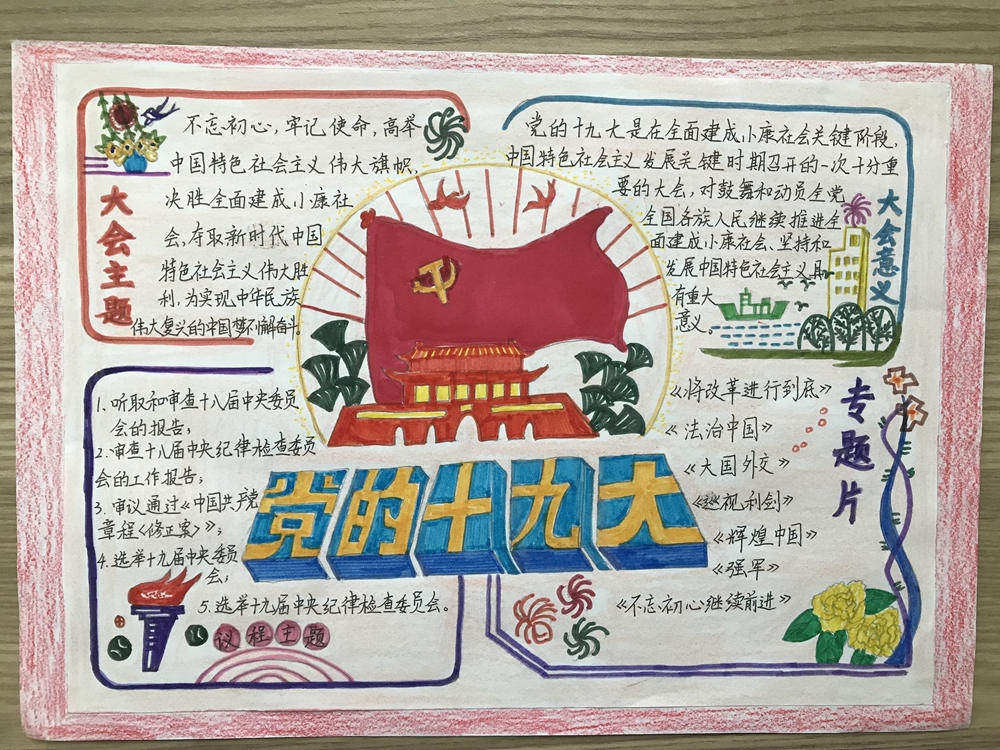 大会主题
不忘初心,牢记使命,高举
中国特色社会主义伟大旗帜,
决胜全面建成小康社
会,夺取新时代中国
特色社会主义伟大胜
利,为实现中华民族
伟大复兴的中国梦不懈奋斗。
大会意义
党的十九大是在全面建成小康社会关键阶段,
中国特色社会主义发展关键时期召开的一次十分重
要的大会,对鼓舞和动员全党
全国各族人民继续推进全
面建成小康社会、坚持和
发展中国特色社会主义具
有重大
意义。
党的十九大
1.听取和审查十八届中央委员
会的报告;
2.审查十八届中央纪律检查委员
会的工作报告;
3.审议通过《中国共产党
章程《修正案》》;
4.选举十九届中央委员
会;
5.选举十九届中央纪律检查委员会。
议程主题
专题片
《将改革进行到底》
《法治中国》
《大国外交》
《巡视利剑》
《辉煌中国》
《强军》
《不忘初心继续前进》